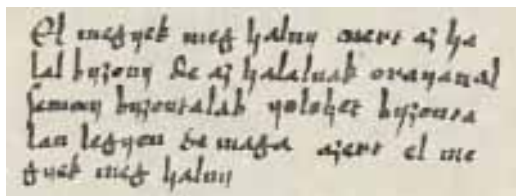 El megyek meg halny mert az ha
lal byzony de az halalnak orayanal
semmy byzontalab nolehet byzonta
lan legyen de maga azert el me
gyek meg halny